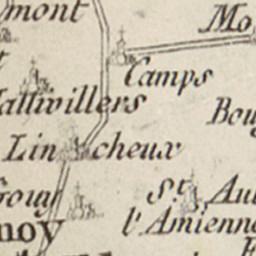 mont
Mo
Camps
allivillers
Bou
Lin cheux
Gouy
St Au
noy
l'Amienno